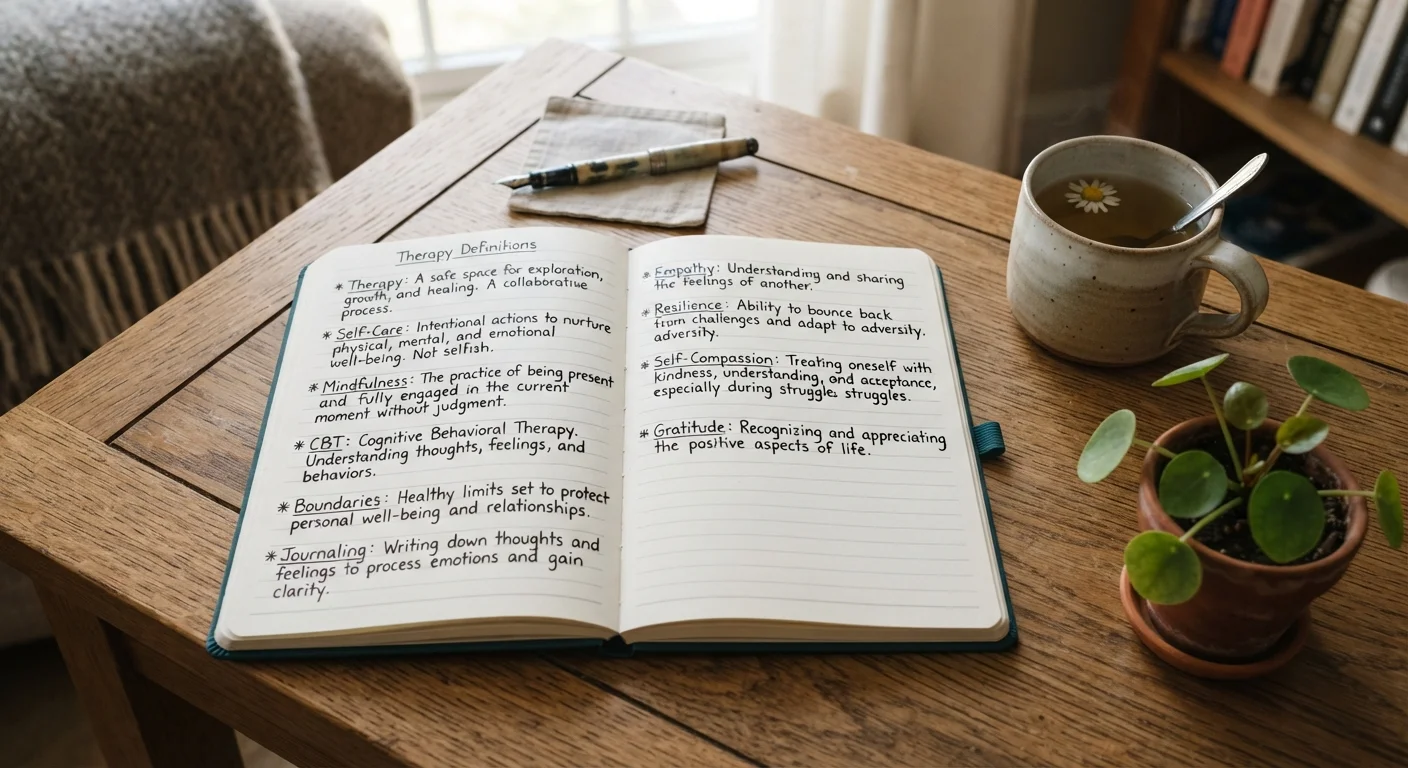 Therapy Definitions
* Therapy: A safe space for exploration,
growth, and healing. A collaborative
process.
* Self-Care: Intentional actions to nurture
physical, mental, and emotional
well-being. Not selfish.
* Mindfulness: The practice of being present
and fully engaged in the current
moment without judgment.
* CBT: Cognitive Behavioral Therapy.
Understanding thoughts, feelings, and
behaviors.
* Boundaries: Healthy limits set to protect
personal well-being and relationships.
* Journaling: Writing down thoughts and
feelings to process emotions and gain
clarity.
* Empathy: Understanding and sharing
the feelings of another.
* Resilience: Ability to bounce back
from challenges and adapt to adversity.
adversity.
* Self-Compassion: Treating oneself with
kindness, understanding, and acceptance,
especially during struggles struggles.
* Gratitude: Recognizing and appreciating
the positive aspects of life.